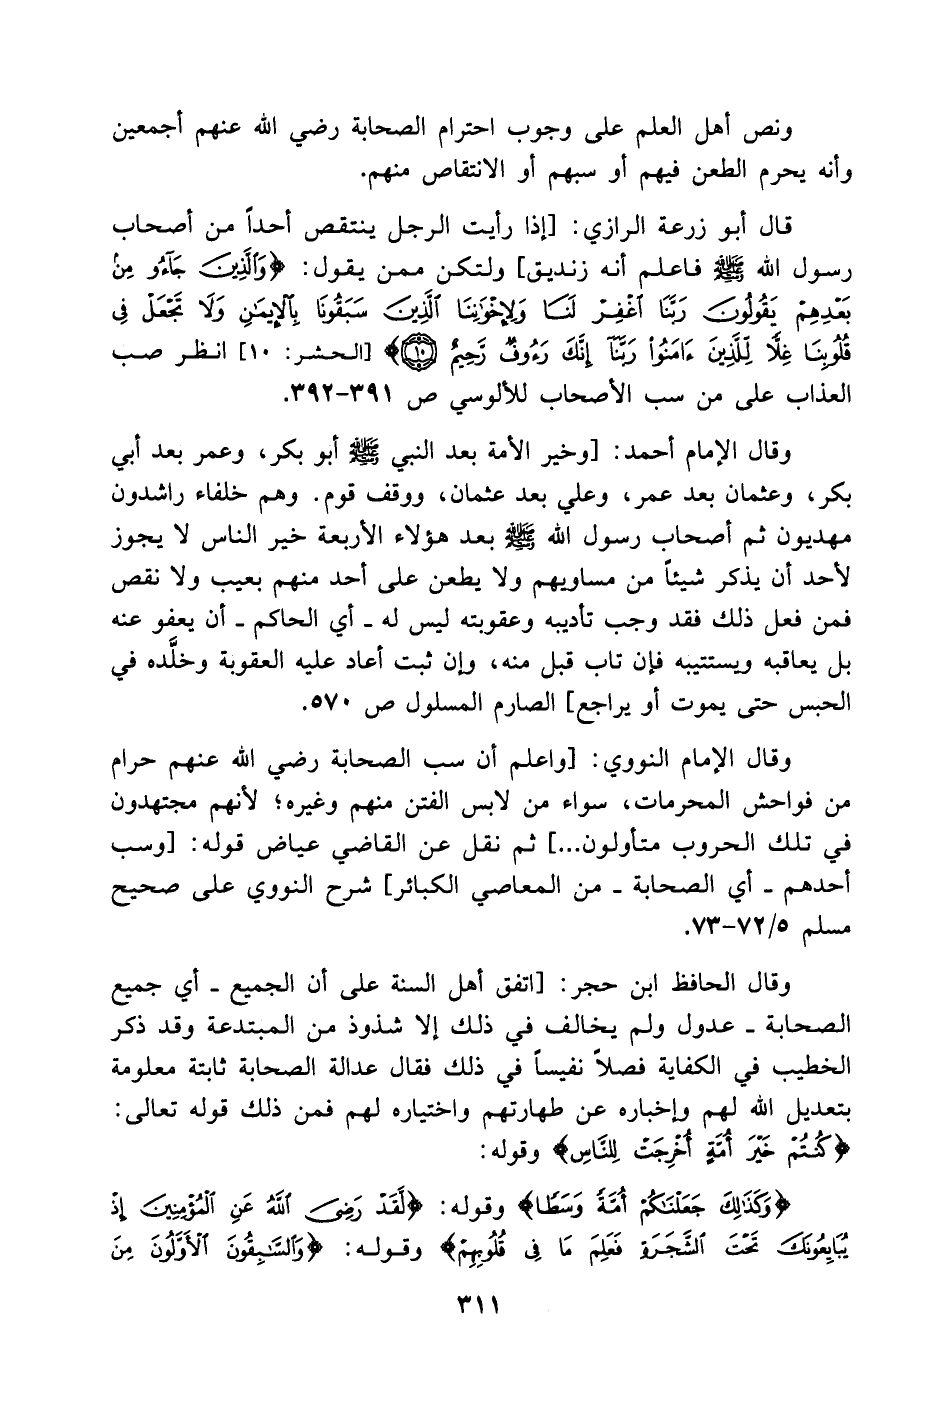 ونص أهل العلم على وجوب احترام الصحابة رضي الله عنهم أجمعين
وأنه يحرم الطعن فيهم أو سبهم أو الانتقاص منهم.
قال أبو زرعة الرازي: [إذا رأيت الرجل ينتقص أحداً من أصحاب
رسول الله ﷺ فاعلم أنه زنديق] ولتكن ممن يقول: ﴿وَٱلَّذِينَ جَآءُو مِنۢ
بَعْدِهِمْ يَقُولُونَ رَبَّنَا ٱغْفِرْ لَنَا وَلِإِخْوَٰنِنَا ٱلَّذِينَ سَبَقُونَا بِٱلْإِيمَٰنِ وَلَا تَجْعَلْ فِى
قُلُوبِنَا غِلًّا لِّلَّذِينَ ءَامَنُوا۟ رَبَّنَآ إِنَّكَ رَءُوفٌ رَّحِيمٌ ۝١٠﴾ [الحشر: ١٠] انظر صب
العذاب على من سب الأصحاب للألوسي ص ٣٩١-٣٩٢.
وقال الإمام أحمد: [وخير الأمة بعد النبي ﷺ أبو بكر، وعمر بعد أبي
بكر، وعثمان بعد عمر، وعلي بعد عثمان، ووقف قوم. وهم خلفاء راشدون
مهديون ثم أصحاب رسول الله ﷺ بعد هؤلاء الأربعة خير الناس لا يجوز
لأحد أن يذكر شيئاً من مساويهم ولا يطعن على أحد منهم بعيب ولا نقص
فمن فعل ذلك فقد وجب تأديبه وعقوبته ليس له ـ أي الحاكم ـ أن يعفو عنه
بل يعاقبه ويستتيبه فإن تاب قبل منه، وإن ثبت أعاد عليه العقوبة وخلَّده في
الحبس حتى يموت أو يراجع] الصارم المسلول ص ٥٧٠.
وقال الإمام النووي: [واعلم أن سب الصحابة رضي الله عنهم حرام
من فواحش المحرمات، سواء من لابس الفتن منهم وغيره؛ لأنهم مجتهدون
في تلك الحروب متأولون...] ثم نقل عن القاضي عياض قوله: [وسب
أحدهم ـ أي الصحابة ـ من المعاصي الكبائر] شرح النووي على صحيح
مسلم ٧٢/٥-٧٣.
وقال الحافظ ابن حجر: [اتفق أهل السنة على أن الجميع ـ أي جميع
الصحابة ـ عدول ولم يخالف في ذلك إلا شذوذ من المبتدعة وقد ذكر
الخطيب في الكفاية فصلاً نفيساً في ذلك فقال عدالة الصحابة ثابتة معلومة
بتعديل الله لهم وإخباره عن طهارتهم واختياره لهم فمن ذلك قوله تعالى:
﴿كُنتُمْ خَيْرَ أُمَّةٍ أُخْرِجَتْ لِلنَّاسِ﴾ وقوله:
﴿وَكَذَٰلِكَ جَعَلْنَٰكُمْ أُمَّةً وَسَطًا﴾ وقوله: ﴿لَّقَدْ رَضِىَ ٱللَّهُ عَنِ ٱلْمُؤْمِنِينَ إِذْ
يُبَايِعُونَكَ تَحْتَ ٱلشَّجَرَةِ فَعَلِمَ مَا فِى قُلُوبِهِمْ﴾ وقوله: ﴿وَٱلسَّٰبِقُونَ ٱلْأَوَّلُونَ مِنَ
٣١١